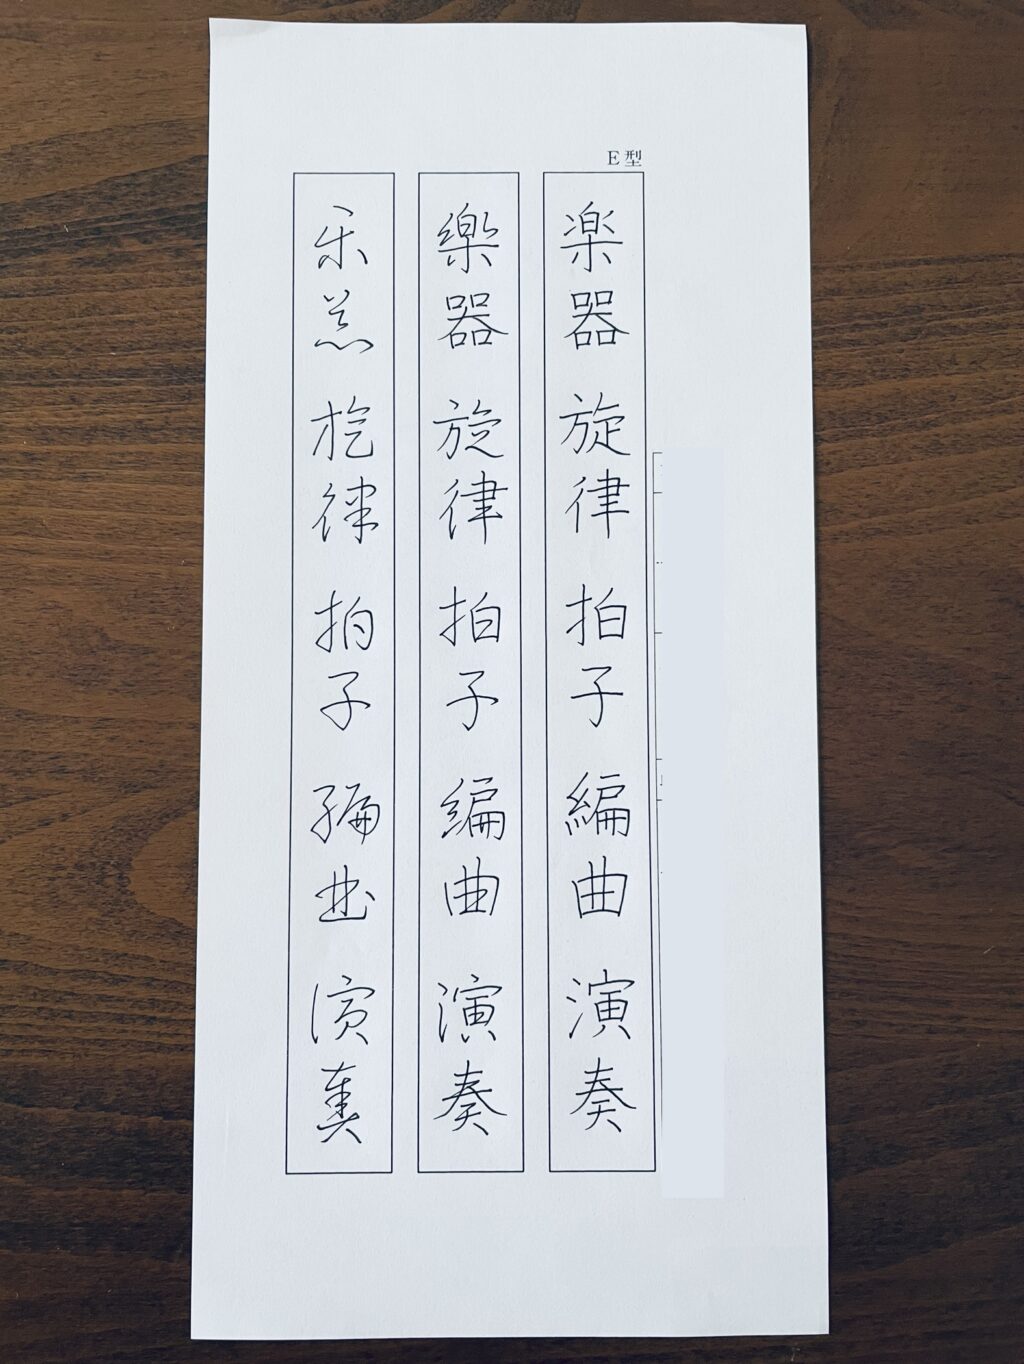 E型
楽器 旋律 拍子 編曲 演奏
樂器 旋律 拍子 編曲 演奏
楽器 旋律 拍子 編曲 演奏